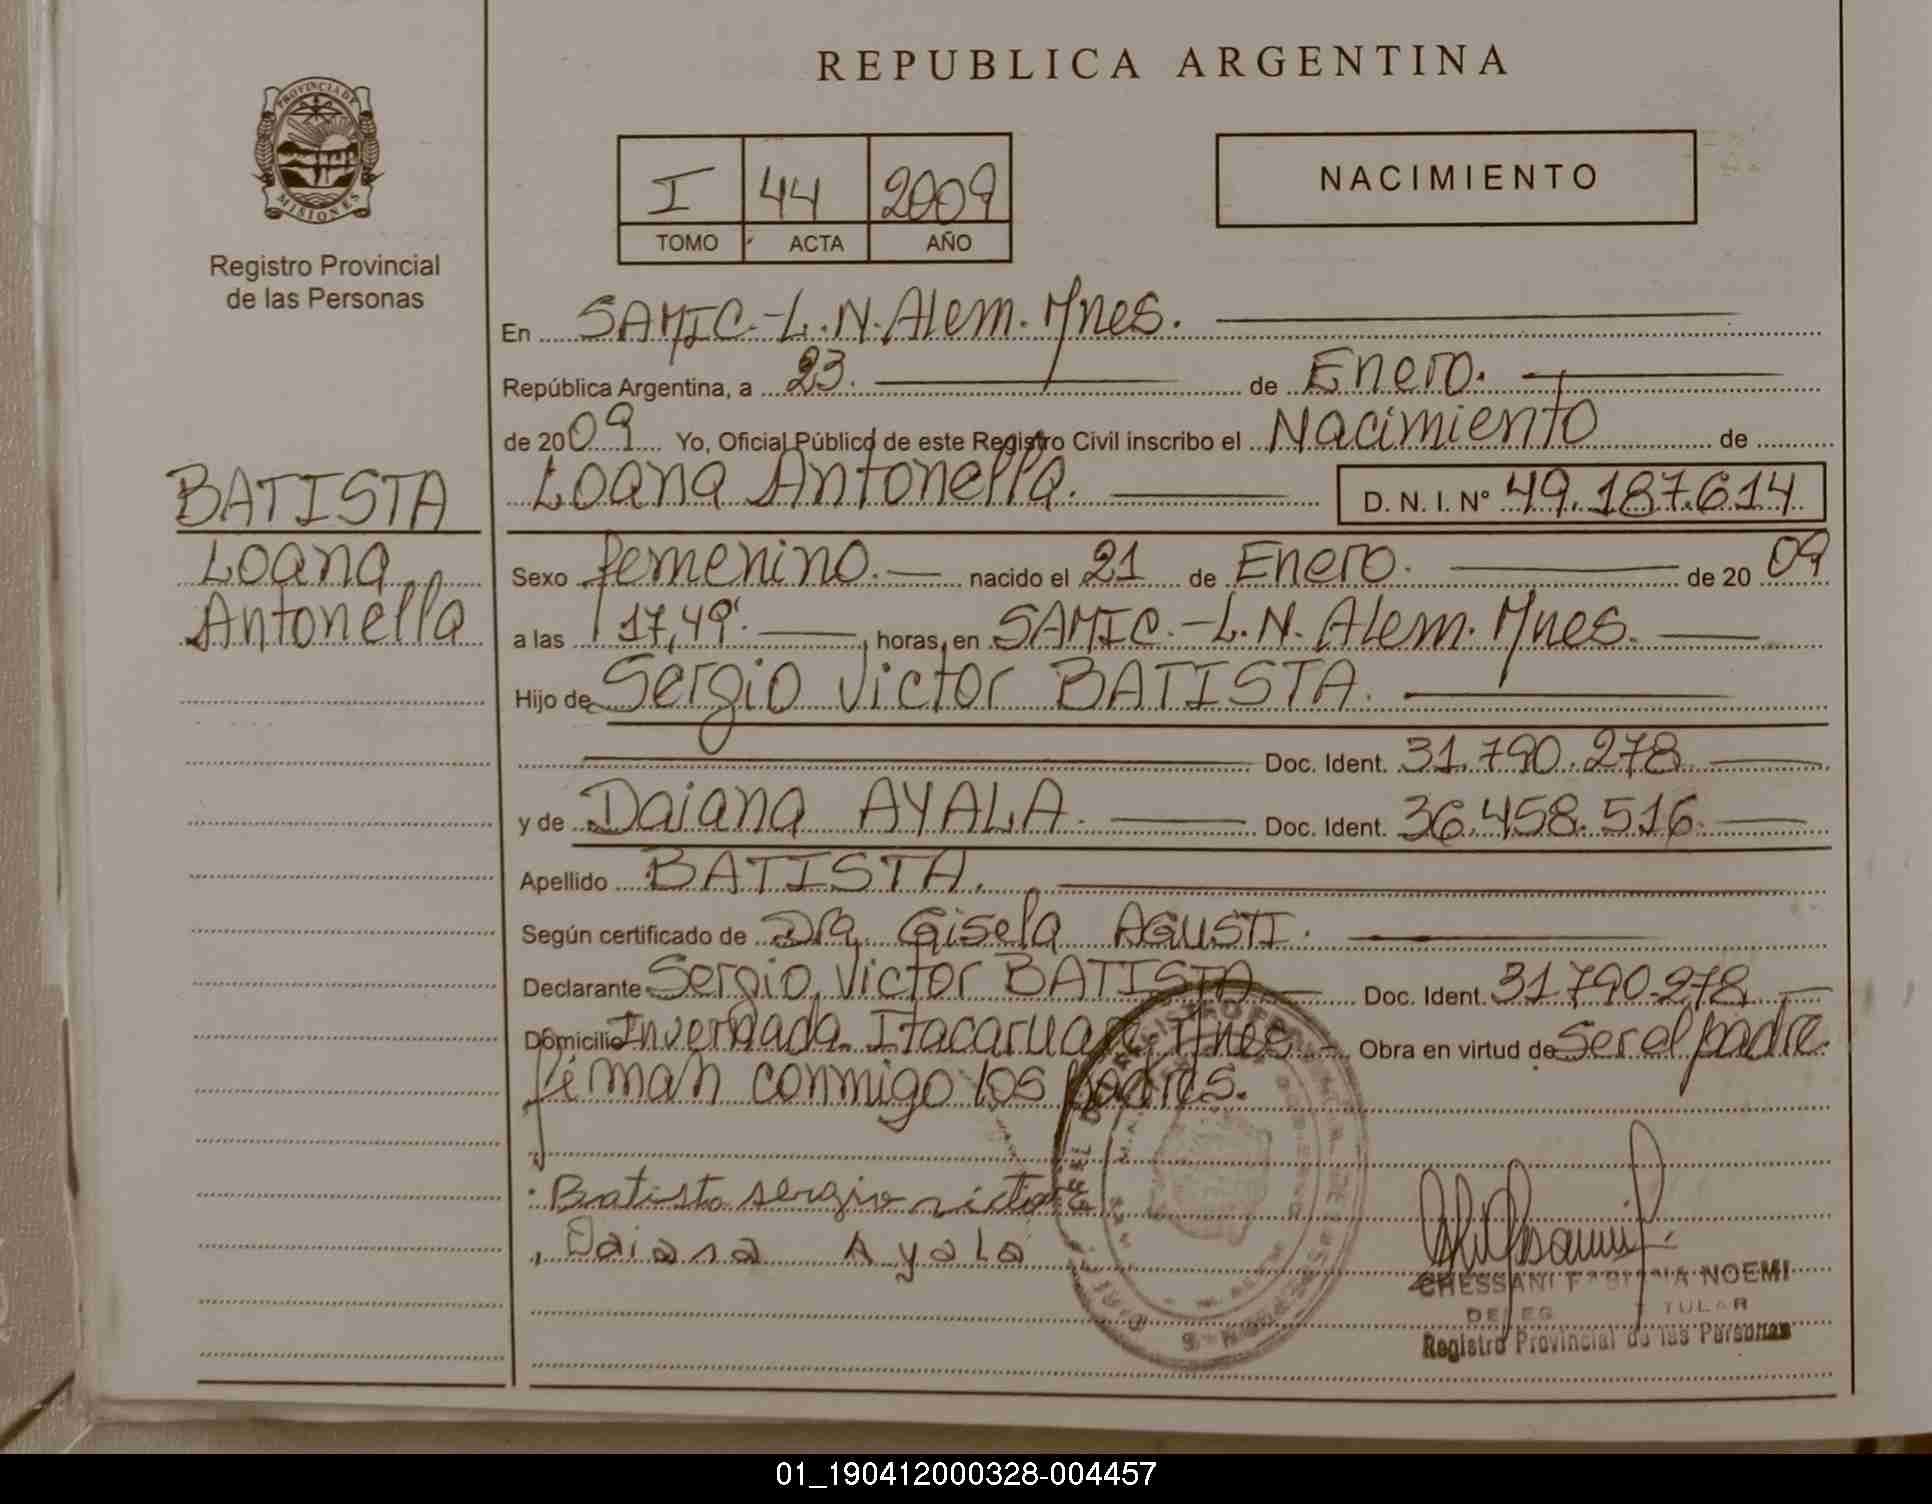 REPUBLICA ARGENTINA
PROVINCIA DE
MISIONES
Registro Provincial
de las Personas
I 44 2009
TOMO ACTA AÑO
NACIMIENTO
En SAMIC.-L.N.Alem.Mnes.
República Argentina, a 23. de Enero.
de 2009 Yo, Oficial Público de este Registro Civil inscribo el Nacimiento de
Loana Antonella. D. N. I. N° 49.187.614
BATISTA
Loana
Antonella
Sexo femenino. nacido el 21 de Enero. de 20 09
a las 17,49'. horas, en SAMIC.-L.N. Alem. Mnes.
Hijo de Sergio Victor BATISTA.
Doc. Ident. 31.790.278
y de Daiana AYALA. Doc. Ident. 36.458.516.
Apellido BATISTA.
Según certificado de Dra. Gisela AGUSTI.
Declarante Sergio Victor BATISTA Doc. Ident. 31.790.278
Domicilio Invernada Itacaruare, Mnes Obra en virtud de ser el padre.
firman conmigo los padres.
Batista sergio victor
Daiana Ayala
CHESSANI NOEMI
Registro Provincial de las Personas
01_190412000328-004457